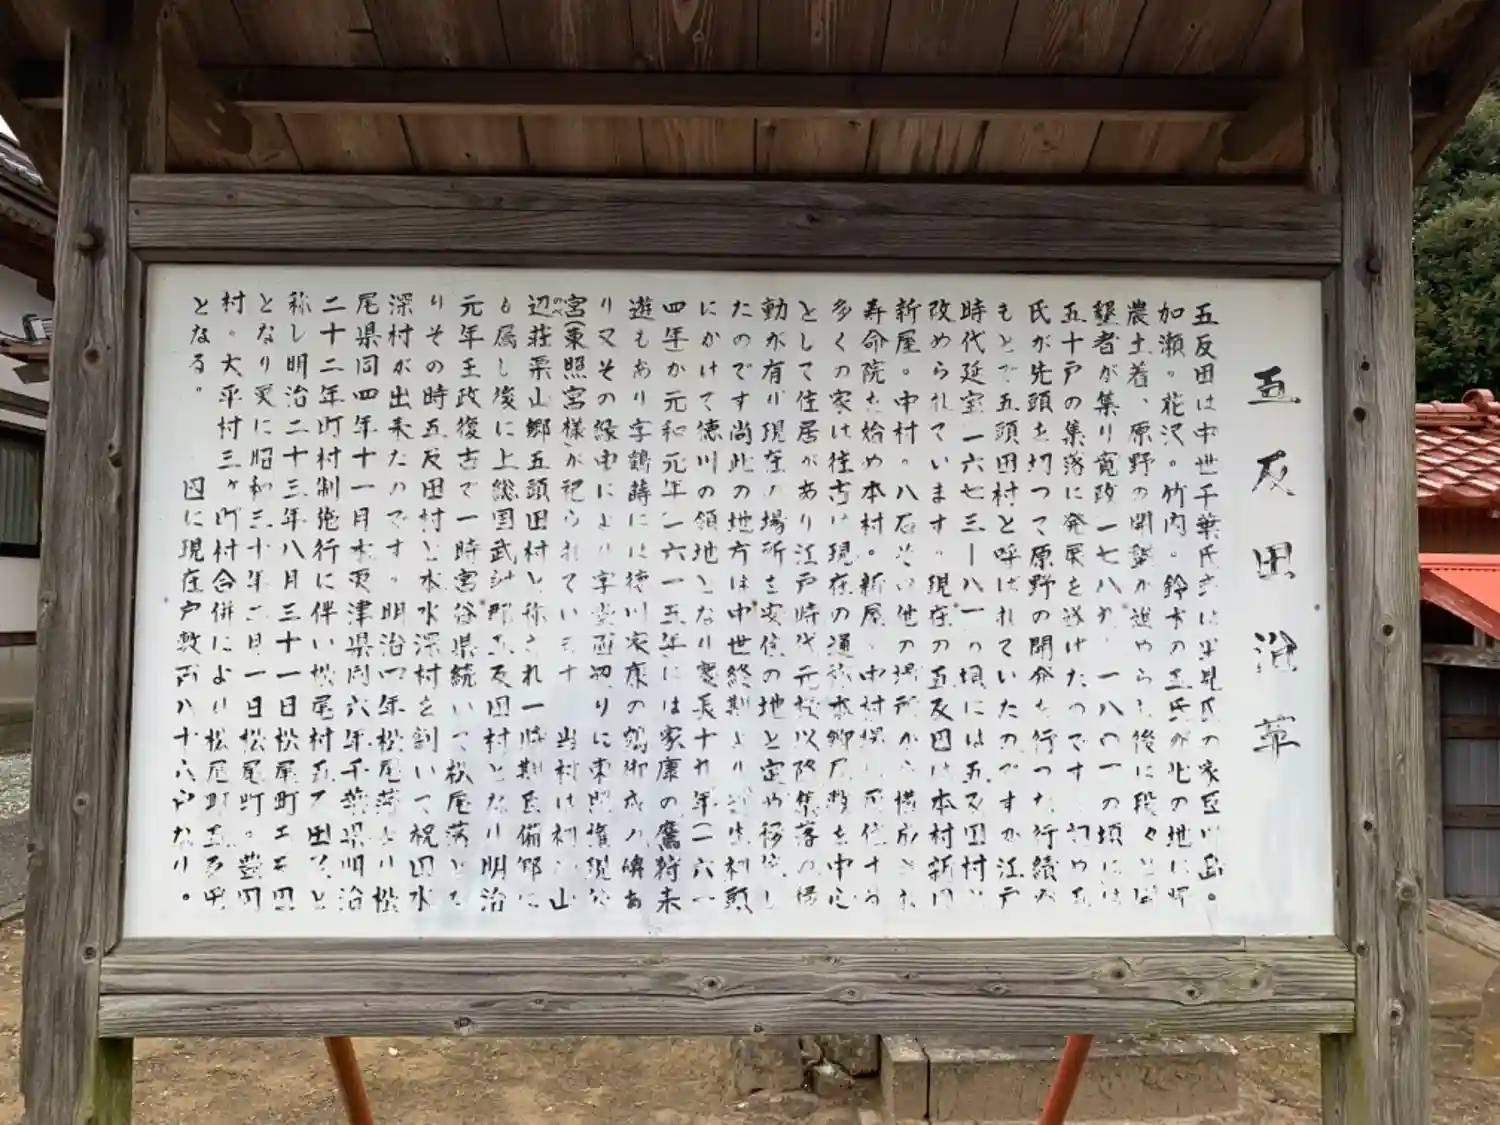 五反田沿革
五反田は中世千葉氏 に 氏の家臣 。
加瀬。花沢。竹内。鈴木の五氏が北の地に
農土着、原野の開墾が進められ後に段々と
墾者が集り寛政一七八九 一八〇一の頃には
五十戸の集落に発展を遂げたのです 五
氏が先頭を切って原野の開発を行った行績の
もとで五頭田村と呼ばれていたのですが江戸
時代延宝一六七三ー八一の頃には五反田村と
改められています。現在の五反田は本村新田
新屋。中村。八石その他の場所から構成され
寿命院を始め本村。新屋、中村 に居住する
多くの家は往古は現在の通称本郷屋敷を中心
として住居があり江戸時代元禄以降集落の移
動が有り現在の場所を安住の地と定め移住し
たのです尚此の地方は中世終期より 頭
にかけて徳川の領地となり慶長十九年(一六一
四年)か元和元年(一六一五年)には家康の鷹狩来
遊もあり字鶴蒔には徳川家康の鶴御成の碑あ
り又その縁由により字 辺りに東照権現
宮(東照宮様)が祀られています 当村は 山
辺荘栗山郷五頭田村と称され一時期 備 に
も属し後に上総国武射郡五反田村となり明治
元年王政復古で一時宮谷県続いて松尾藩とな
りその時五反田村と木水深村を割いて祝田水
深村が出来たのです。明治四年松尾藩より松
尾県同四年十一月木更津県同六年千葉県明治
二十二年町村制施行に伴い松尾村五反田 と
称し明治二十三年八月三十一日松尾町五反田
となり更に昭和三十年二月一日松尾町。豊岡
村。大平村三ヶ町村合併により松尾町五反田
となる。 因に現在戸数 八十六戸なり。